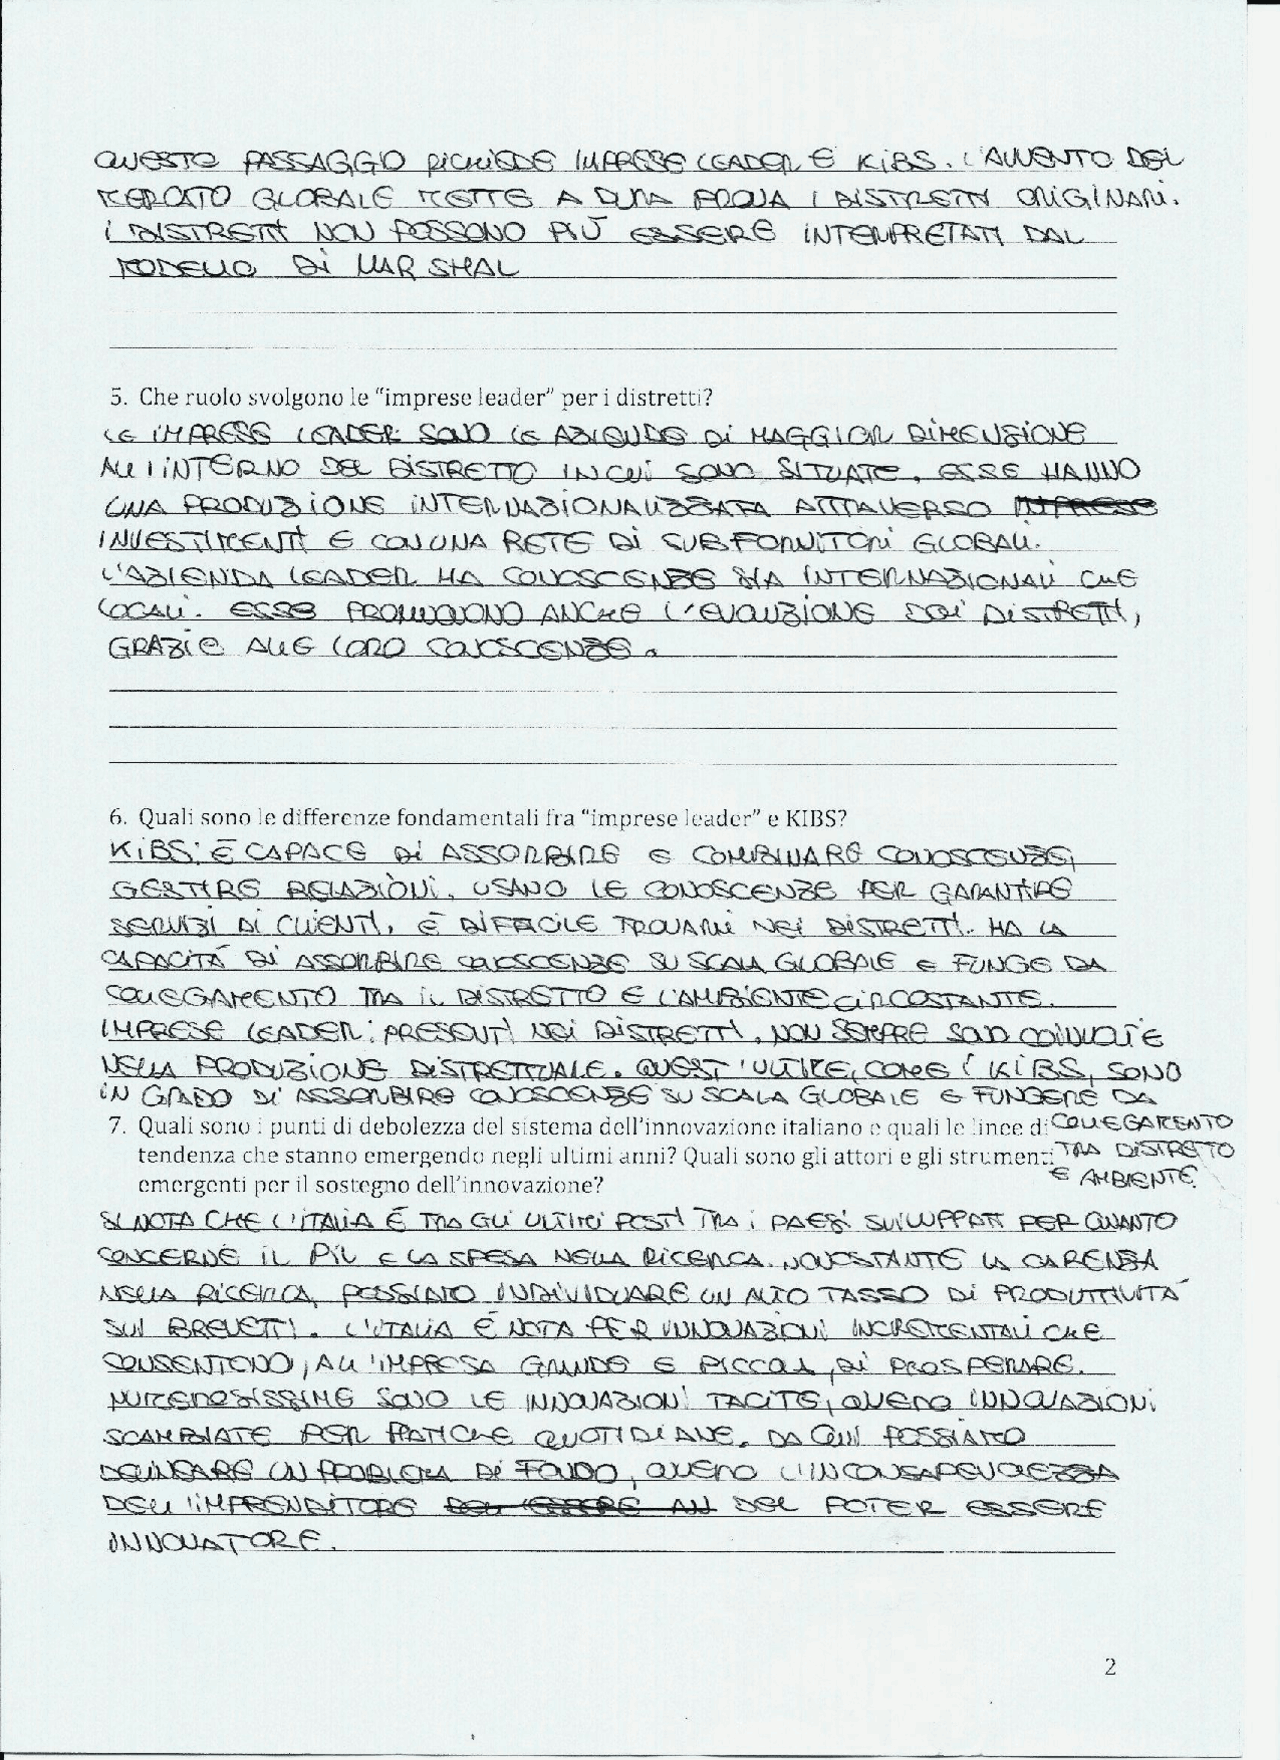 QUESTO PASSAGGIO RICHIEDE IMPRESE LEADER E KIBS. L'AVVENTO DEL
MERCATO GLOBALE METTE A DURA PROVA I DISTRETTI ORIGINARI.
I DISTRETTI NON POSSONO PIÙ ESSERE INTERPRETATI DAL
MODELLO DI MARSHAL
5. Che ruolo svolgono le "imprese leader" per i distretti?
LE IMPRESE LEADER SONO LE AZIENDE DI MAGGIOR DIMENSIONE
ALL'INTERNO DEL DISTRETTO IN CUI SONO SITUATE. ESSE HANNO
UNA PRODUZIONE INTERNAZIONALIZZATA ATTRAVERSO IMPRESE
INVESTIMENTI E CON UNA RETE DI SUBFORNITORI GLOBALI.
L'AZIENDA LEADER HA CONOSCENZE SIA INTERNAZIONALI CHE
LOCALI. ESSE PROMUOVONO ANCHE L'EVOLUZIONE DEI DISTRETTI,
GRAZIE ALLE LORO CONOSCENZE.
6. Quali sono le differenze fondamentali fra "imprese leader" e KIBS?
KIBS: È CAPACE DI ASSORBIRE E COMBINARE CONOSCENZE,
GESTIRE RELAZIONI. USANO LE CONOSCENZE PER GARANTIRE
SERVIZI DI CLIENTI, È DIFFICILE TROVARLI NEI DISTRETTI. HA LA
CAPACITÀ DI ASSORBIRE CONOSCENZE SU SCALA GLOBALE E FUNGE DA
COLLEGAMENTO TRA IL DISTRETTO E L'AMBIENTE CIRCOSTANTE.
IMPRESE LEADER: PRESENTI NEI DISTRETTI, NON SEMPRE SONO COINVOLTE
NELLA PRODUZIONE DISTRETTUALE. QUEST'ULTIME, COME I KIBS, SONO
IN GRADO DI ASSORBIRE CONOSCENZE SU SCALA GLOBALE E FUNGERE DA
COLLEGAMENTO
TRA DISTRETTO
E AMBIENTE.
7. Quali sono i punti di debolezza del sistema dell'innovazione italiano e quali le linee di
tendenza che stanno emergendo negli ultimi anni? Quali sono gli attori e gli strumenti
emergenti per il sostegno dell'innovazione?
SI NOTA CHE L'ITALIA È TRA GLI ULTIMI POSTI TRA I PAESI SVILUPPATI PER QUANTO
CONCERNE IL PIL E LA SPESA NELLA RICERCA. NONOSTANTE LA CARENZA
NELLA RICERCA, POSSIAMO INDIVIDUARE UN ALTO TASSO DI PRODUTTIVITÀ
SUI BREVETTI. L'ITALIA È NOTA PER INNOVAZIONI INCREMENTALI CHE
CONSENTONO, ALL'IMPRESA GRANDE E PICCOLA, DI PROSPERARE.
NUMEROSISSIME SONO LE INNOVAZIONI TACITE, OVVERO INNOVAZIONI
SCAMBIATE PER PRATICHE QUOTIDIANE. DA QUI POSSIAMO
DELINEARE UN PROBLEMA DI FONDO, OVVERO L'INCONSAPEVOLEZZA
DELL'IMPRENDITORE DEL POTER ESSERE
INNOVATORE.
2